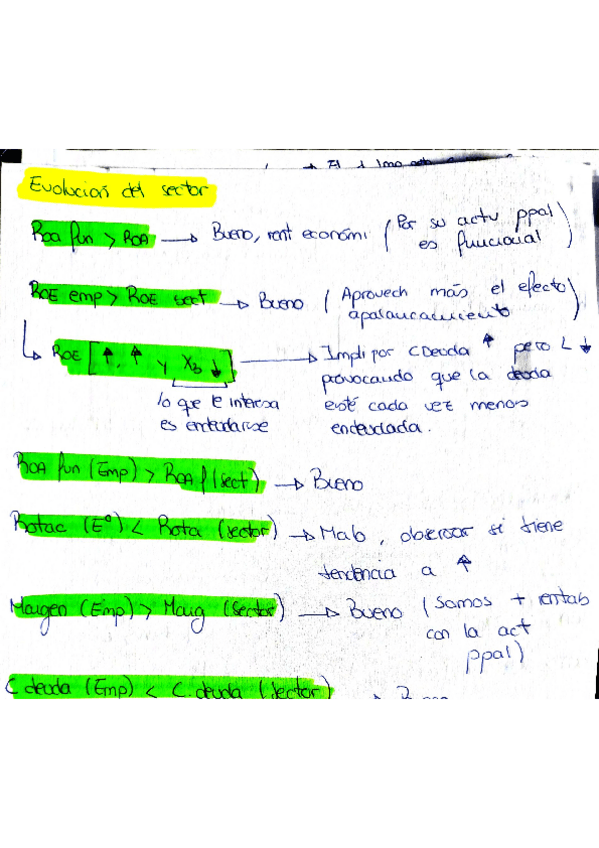 Evolucion del sector
Roa fun > ROA → Bueno, rent económi (Por su actv ppal
es funcional)
ROE emp > ROE sect → Bueno (Aprovech más el efecto
apalancamiento)
ROE [↑, ↑ y X3 ↓] → Impli por CDeuda ↑ pero L ↓
provocando que la deuda
lo que le interesa
esté cada vez menos
es endeudarse
endeudada.
ROA fun (Emp) > ROA f (sect) → Bueno
Rotac (Eº) < Rota (sector) → Malo, observar si tiene
tendencia a ↑
Margen (Emp) > Marg (sector) → Bueno (Somos + rentab
con la act
ppal)
C deuda (Emp) < C. deuda (sector) →